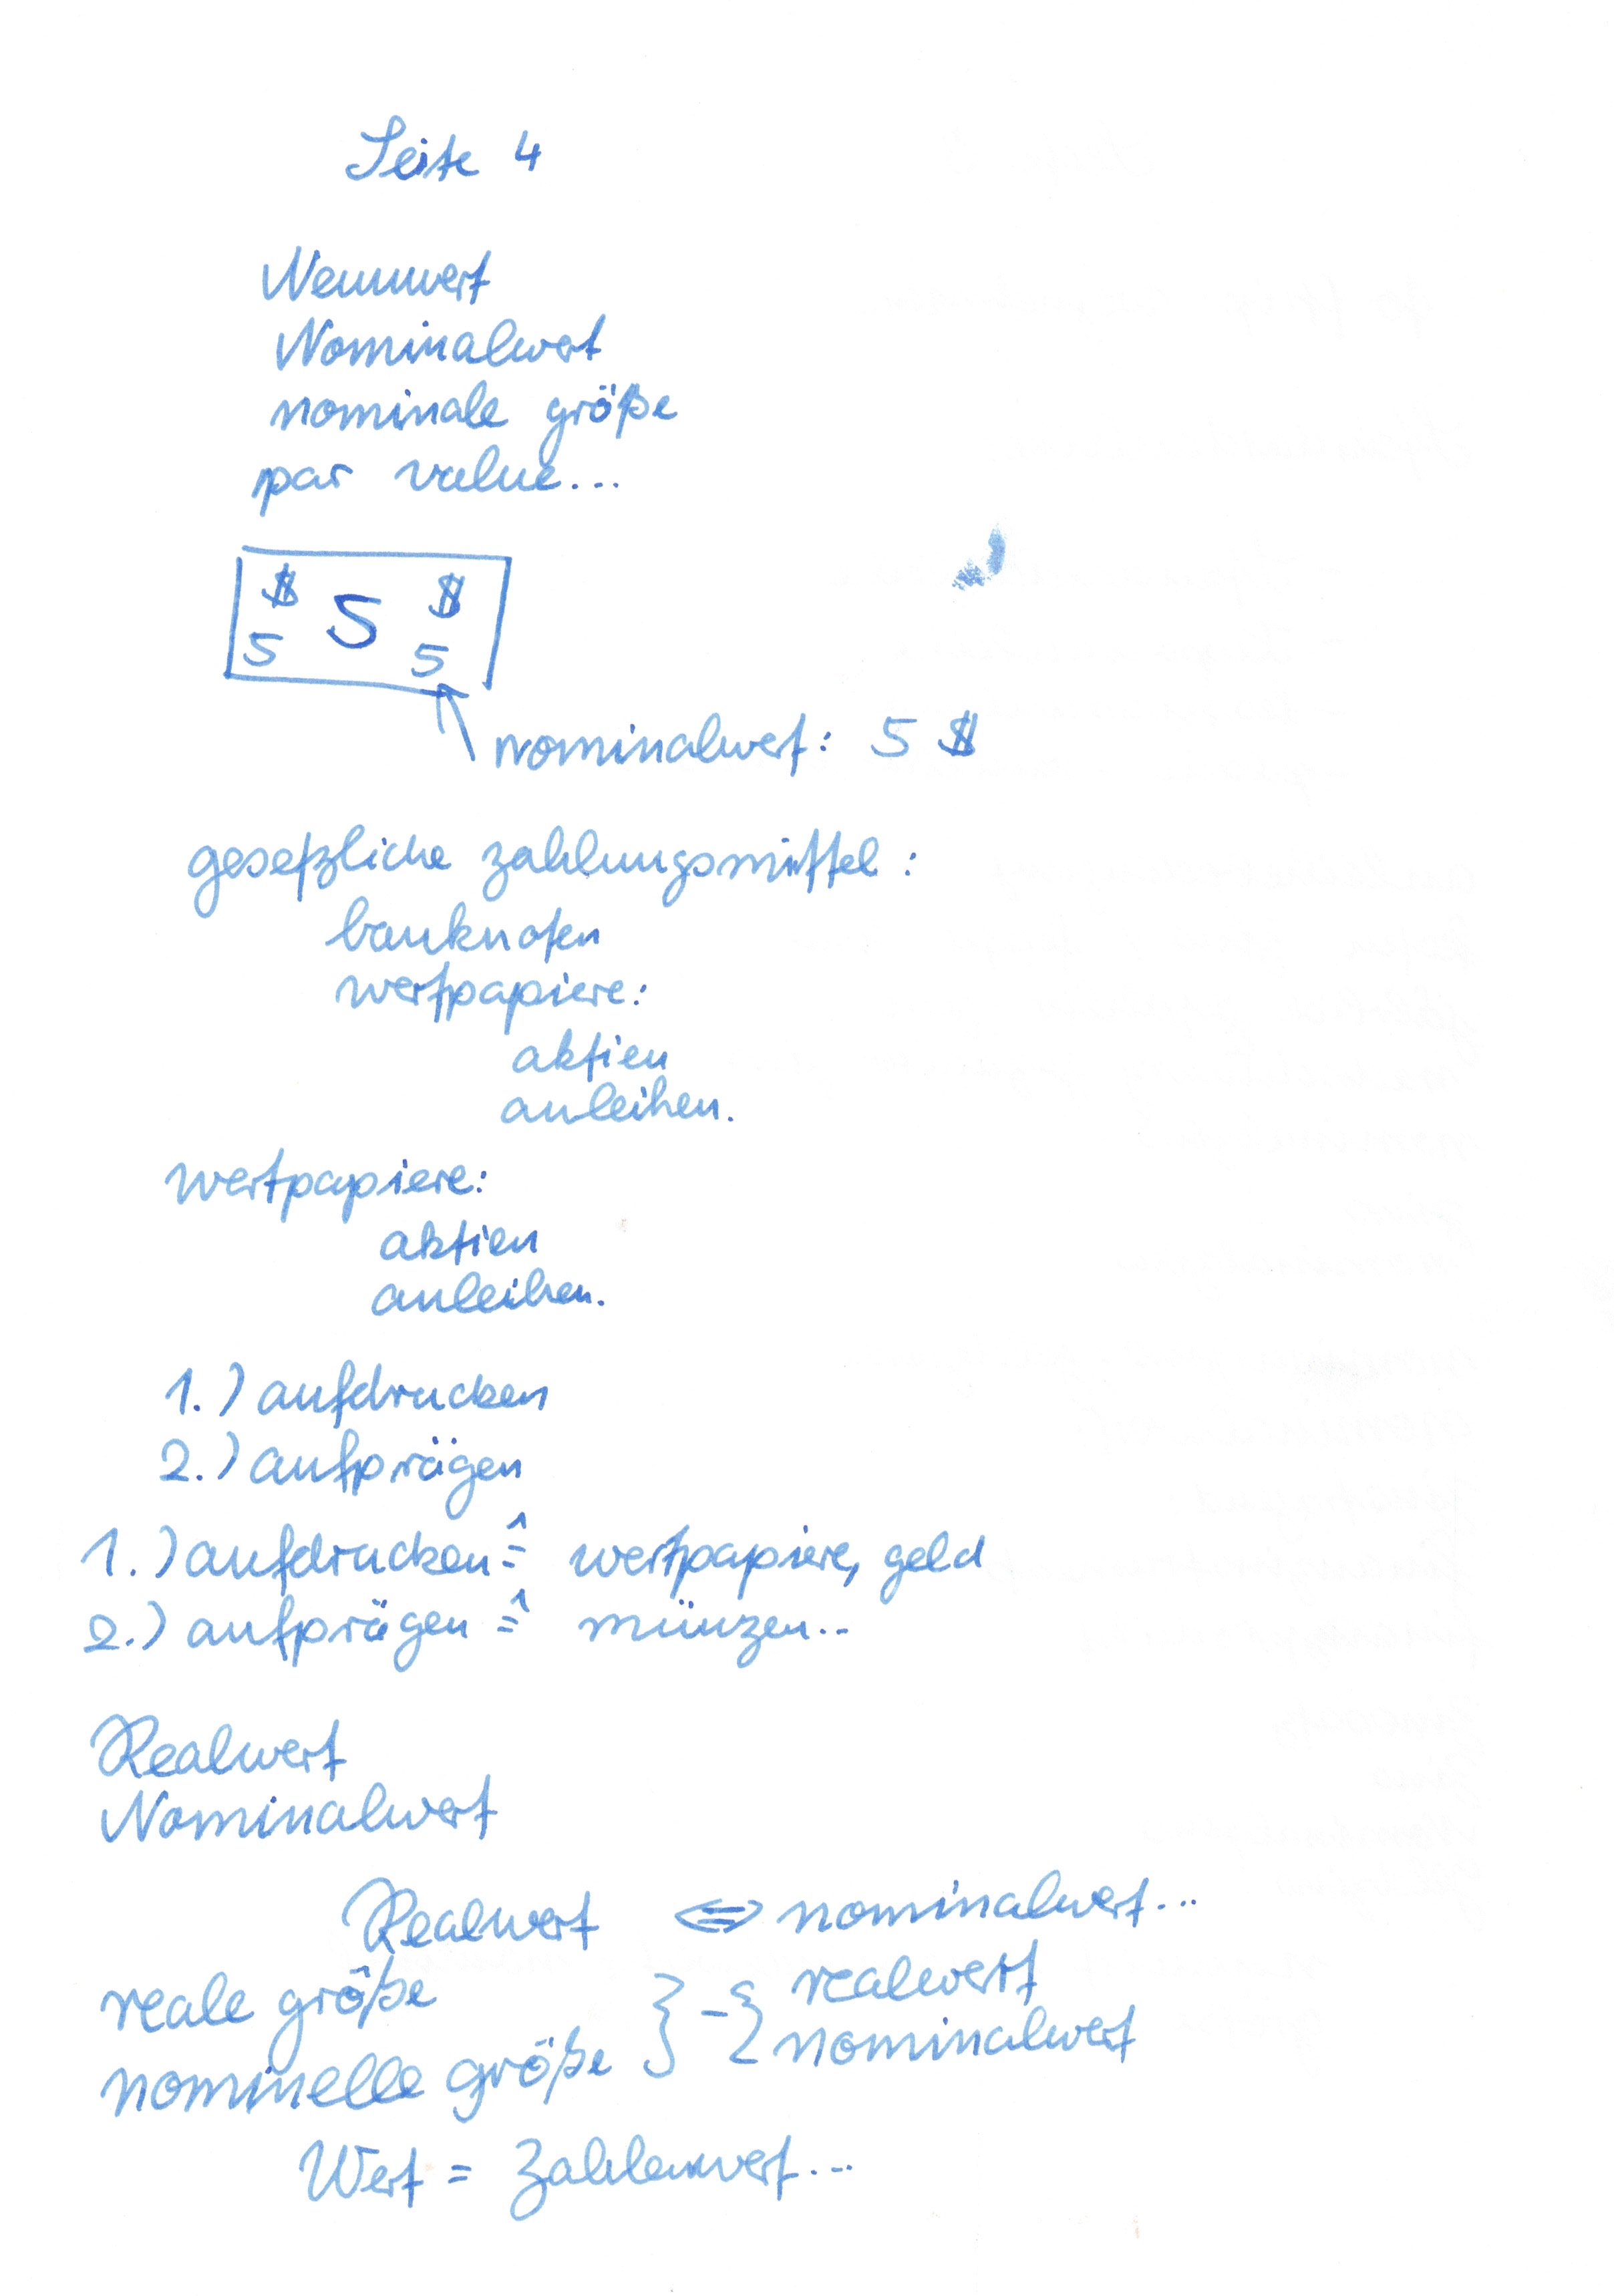 Seite 4
Nennwert
Nominalwert
nominale größe
par value...
$ 5 $
5 5
nominalwert: 5 $
gesetzliche zahlungsmittel:
banknoten
wertpapiere:
aktien
anleihen.
wertpapiere:
aktien
anleihen.
1.) aufdrucken
2.) aufprägen
1.) aufdrucken ≙ wertpapiere, geld
2.) aufprägen ≙ münzen..
Realwert
Nominalwert
Realwert ⇔ nominalwert...
reale größe } - { realwert
nominelle größe } - { nominalwert
Wert = Zahlenwert...